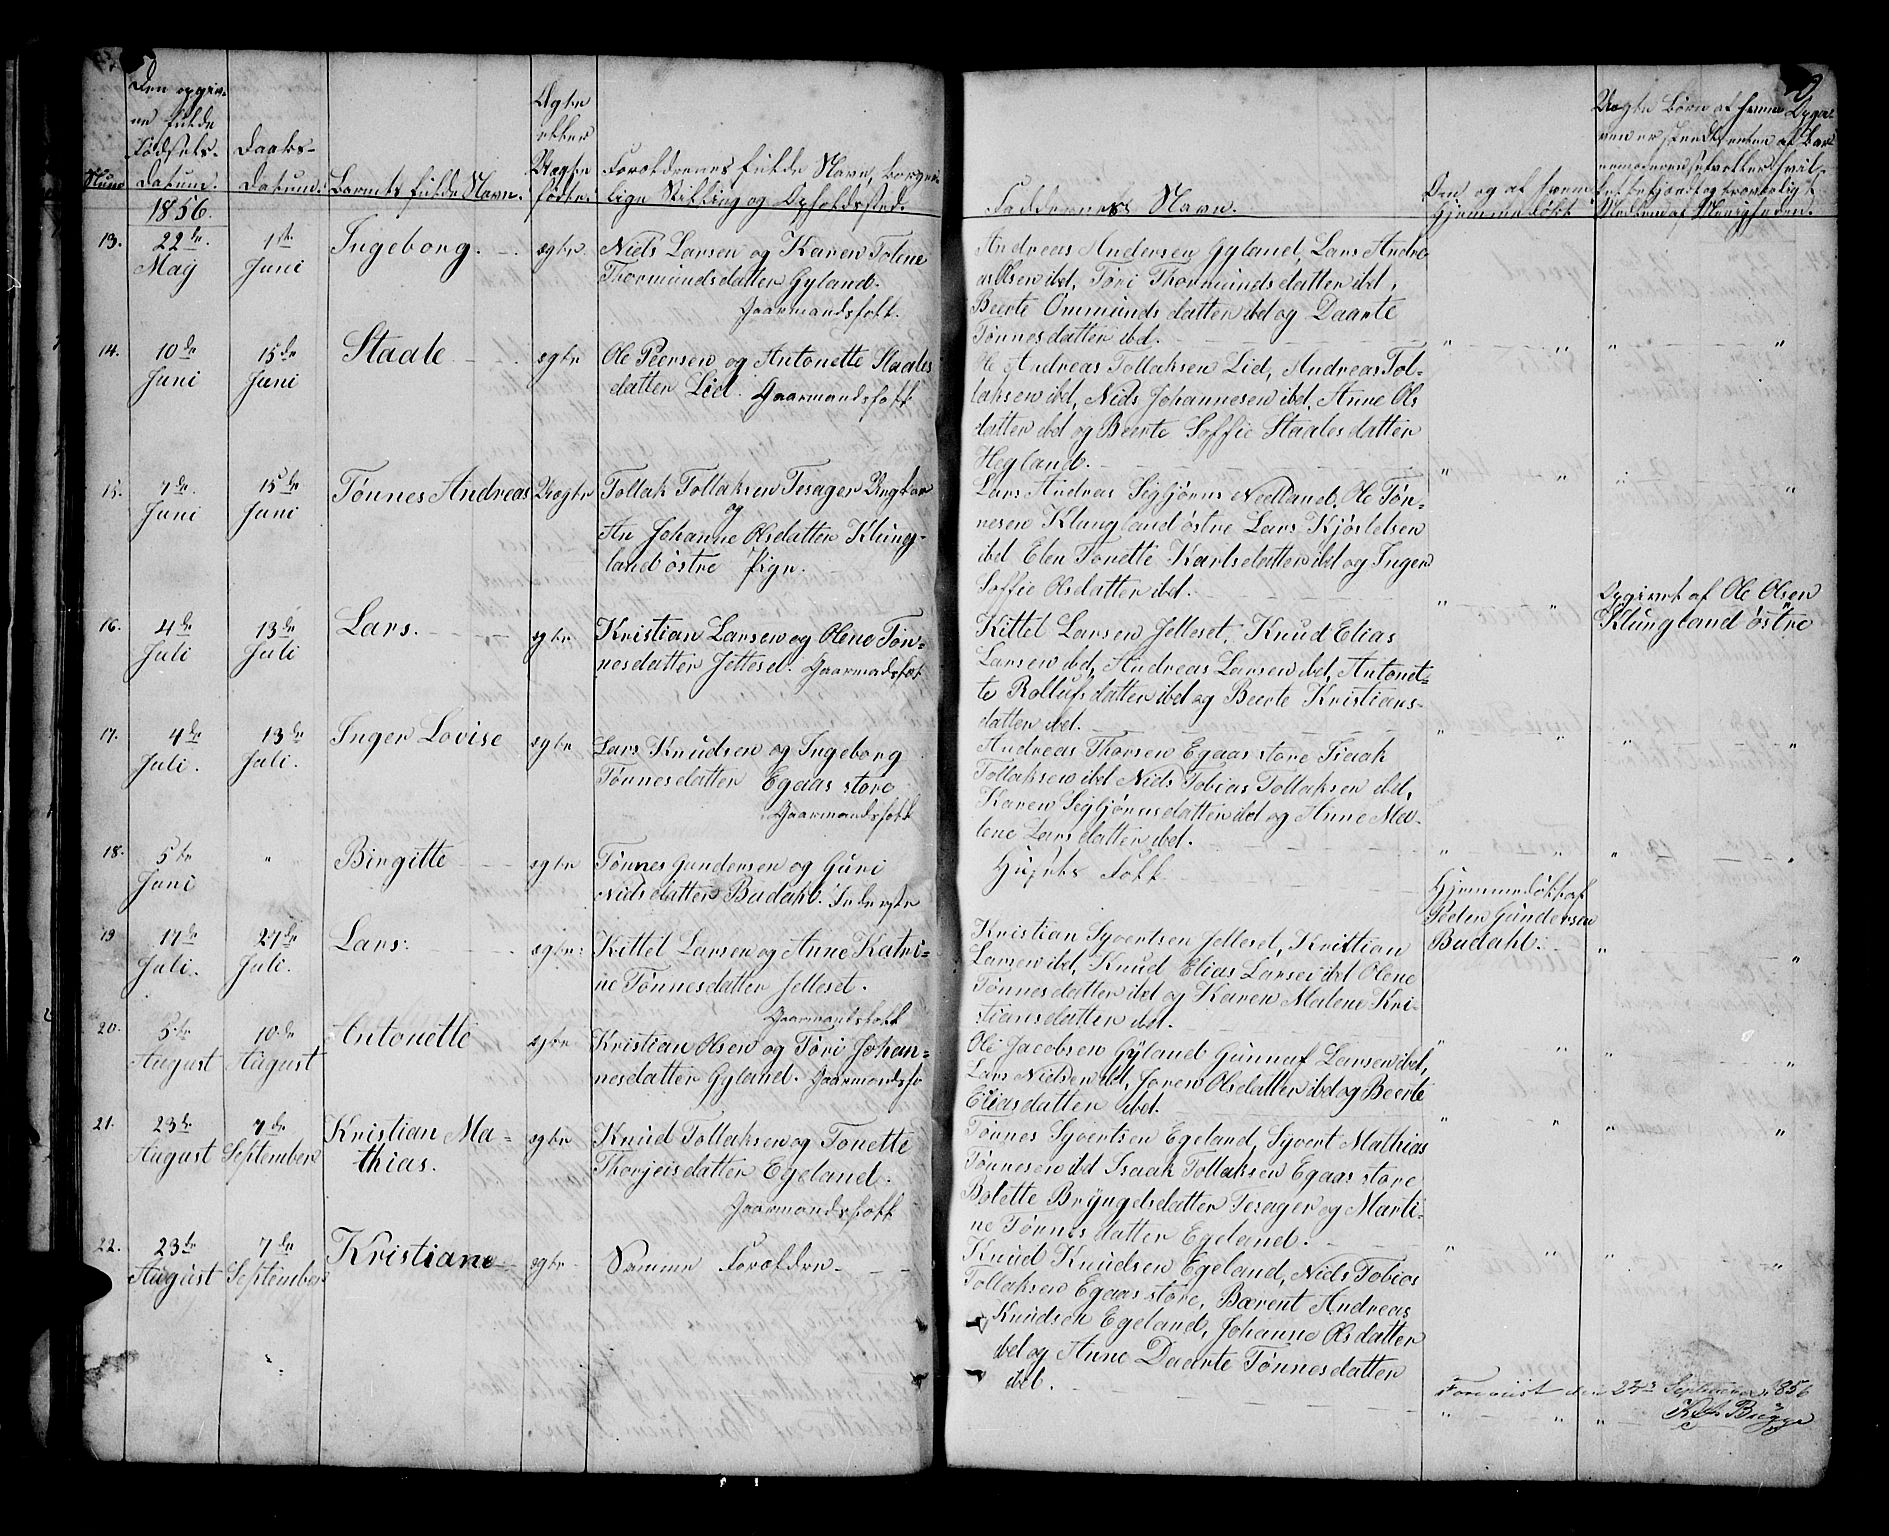 Den opgiv-
ne fulde
Fødsels-
Datum.
Daabs-
Datum.
Barnets fulde Navn.
Ægte
eller
Uægte
fødte.
Forældrenes fulde Navn, Borger-
lige Stilling og Opholdssted.
Faddernes Navn.
Den og af hvem
Hjemmedøbt
Uægte Børn af hvem Opgi-
1856.
13.
22de
May
1ste
Juni
Ingeborg.
ægte.
Niels Larsen og Karen Toline
Thormundsdatter Gyland.
Gaarmandsfolk.
Andreas Andersen Gyland, Lars Andre-
as Olsen ibd, Tøri Thormundsdatter ibd,
Beerte Ommundsdatter ibd og Daarte
Tønnesdatter ibd.
14.
10de
Juni
15de
Juni
Staale
ægte
Ole Peersen og Antonette Staales
datter Lid. Gaarmandsfolk
Ole Andreas Tollaksen Lid, Andreas Tol-
laksen ibd, Niels Johannesen ibd, Anne Ols
datter ibd og Beerte Soffie Staalesdatter
Hegland.
15.
7de
Juni
15de
Juni
Tønnes Andreas
Uægte
Tollak Tollaksen Tesager Ungkar
og
An Johanne Olsdatter Klung-
land østre Pige.
Lars Andreas Sigbjørns Nedland, Ole Tøn-
nesen Klungland østre Lars Kjøstelsen
ibd Elen Tonette Karlsdatter ibd og Inger
Soffie Olsdatter ibd.
Opgivet af Ole Olsen
Klungland østre
16.
4de
Juli
13de
Juli
Lars.
ægte.
Kristian Larsen og Olene Tøn-
nesdatter Jelleset. Gaarmandsfolk
Kittel Larsen Jelleset, Knud Elias
Larsen ibd, Andreas Larsen ibd, Antonet-
te Rollufsdatter ibd og Beerte Kristians-
datter ibd.
17.
4de
Juli.
13de
Juli.
Inger Lovise
ægte
Lars Knudsen og Ingeborg
Tønnesdatter Egaas store
Gaarmandsfolk
Andreas Thorsen Egaas store Isaak
Tollaksen ibd Niels Tobias Tollaksen ibd,
Karen Sigbjørnsdatter ibd og Anne Ma-
lene Larsdatter ibd.
18.
5te
Juni
" "
Birgitte
ægte
Tønnes Gundersen og Guri
Nielsdatter Budahl. Inderste
Husets Folk
Hjemmedøbt af
Peder Gundersen
Budahl.
19
17de
Juli.
27de
Juli.
Lars.
ægte.
Kittel Larsen og Anne Katri-
ne Tønnesdatter Jelleset.
Gaarmandsfolk
Kristian Syvertsen Jelleset, Kristian
Larsen ibd, Knud Elias Larsen ibd Olene
Tønnesdatter ibd og Karen Malene Kri-
stiansdatter ibd.
20.
5te
August
10de
August
Antonette
ægte
Kristian Olsen og Tøri Johan-
nesdatter Gyland. Gaarmandsfo
Ole Jacobsen Gyland Gunnuf Larsen ibd,
Lars Nielsen ibd, Joren Olsdatter ibd og Beerte
Eliasdatter ibd.
21.
23de
August
7de
September
Kristian Ma-
thias.
ægte
Knud Tollaksen og Tonette
Thorjeisdatter Egeland.
Gaarmandsfolk
Tønnes Syvertsen Egeland, Syvert Mathias
Tønnesen ibd Isaak Tollaksen Egaas store
Bolette Bryngelsdatter Tesager og Marti-
ne Tønnesdatter Egeland.
22.
23de
August
7de
September
Kristiane
ægte
Samme Forældre
Knud Knudsen Egeland, Niels Tobias
Tollaksen Egaas store, Bærent Andreas
Knudsen Egeland, Johanne Olsdatter
ibd og Anne Daarte Tønnesdatter
ibd.
Foreviist den 23de September 1856